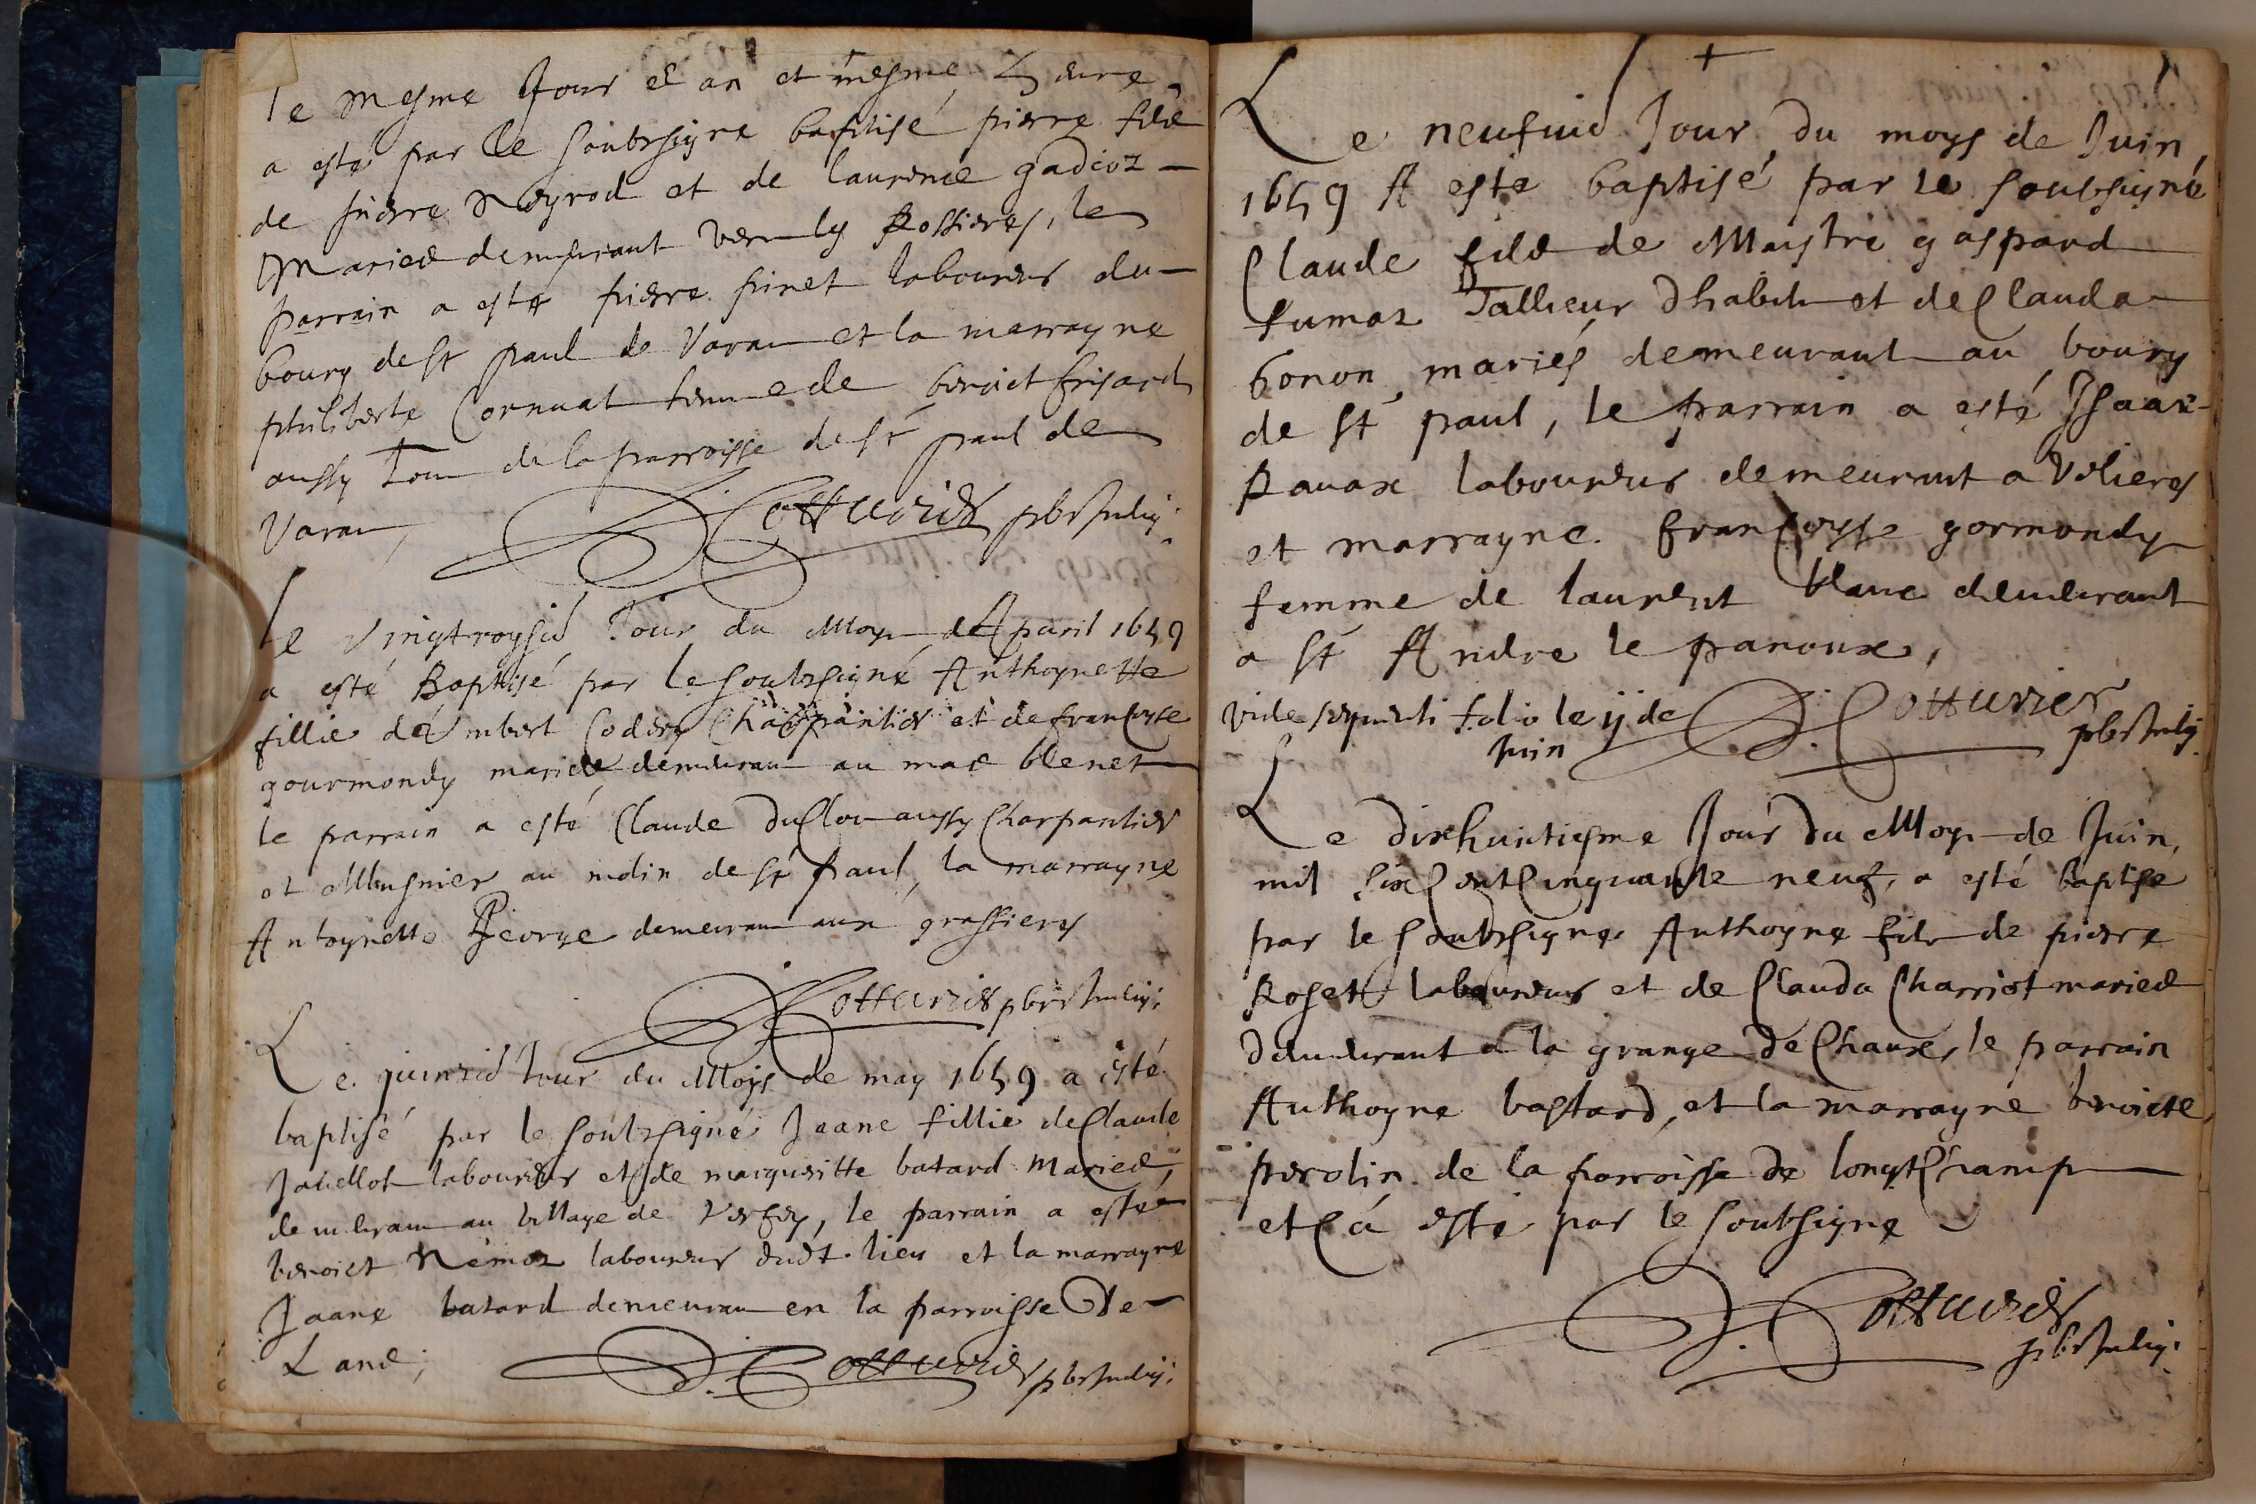 le mesme Jour et an et mesme heure
a esté par le soubsigne baptisé pierre filz
de pierre Neyrod et de laurence gadioz
Mariez demeurant vers les Rossieres, le
parrain a este pierre pinet laboureur du
bourg de st paul de Varax et la marrayne
philiberte Cornuat femme de benoict frisard
aussy tous de la parroisse de st paul de
Varax,
Cotturier pbr Indig.
Le vingtroysie Jour du Moys de Apvril 1659
a esté Baptisé par le soubsigné Anthoynette
fillie de Imbert Charpantier et de francoyse
gourmondy mariez demeurant au mas blenet
le parrain a esté Claude duClou aussy Charpantier
et Musnier au molin de st Paul, la marrayne
Antoynette George demeurant aux grassieres
Cotturier pbr Indig.
Le quinzie Jour du Moys de may 1659 a esté
baptisé par le soubsigné Jeane fillie de Claude
Javellot laboureur et de margueritte batard Mariez,
demeurant au village de Verfey, le parrain a esté
benoict Nemoz laboureur dudt lieu et la marrayne
Jeane batard demeurant en la parroisse de
Lane;
Cotturier pbr Indig.
+
Le neufuie Jour du moys de Juin
1659 A este baptisé par le soubsigné
Claude filz de Maystre gaspard
fumoz Tallieur dhabitz et de Clauda
bonon mariés demeurant au bourg
de st paul, le parrain a esté Isaac
Ravax laboureur demeurant a Vilieres
et marrayne francoyse gormondy
femme de laurent blanc demeurant
a st Andre le panoux,
vide sequenti folio le ij de
Juin
Cotturier
pbr Indig.
Le dixhuictiesme Jour du Moys de Juin,
mil six Cent Cinquante neuf, a esté baptise
par le soubsigne Anthoyne filz de pierre
Roset laboureur et de Clauda Charriot mariez
demeurant a la grange de Chaux, le parrain
Anthoyne bastard, et la marrayne benoicte
perolin de la parroisse de longtChamp
et C a este par le soubsigne
Cotturier
pbr Indig.